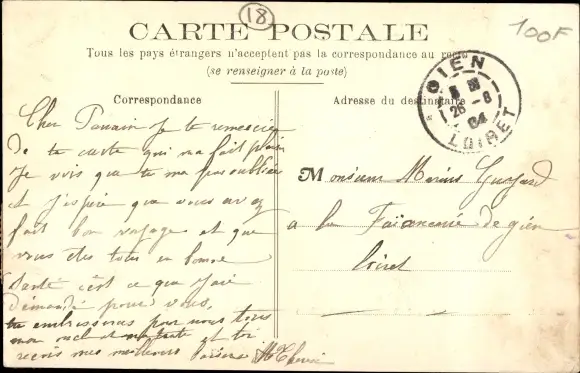 18
100F
CARTE POSTALE
Tous les pays étrangers n'acceptent pas la correspondance au recto
(se renseigner à la poste)
Correspondance
Adresse du destinataire
GIEN
26 - 8
04
LOIRET
Cher Parrain je te remercie
de ta carte qui ma fait plaisir
Je vois que tu ma pas oublié
et j'espère que vous avez
fait bon voyage et que
vous etes tous en bonne
santé c'est ce que
demande pour vous,
tu embrasseras pour nous tous
mon oncle et ma tante et toi
reçois mes meilleurs baisers
Monsieur Marius Guyard
a la Faïancerie de gien
loiret